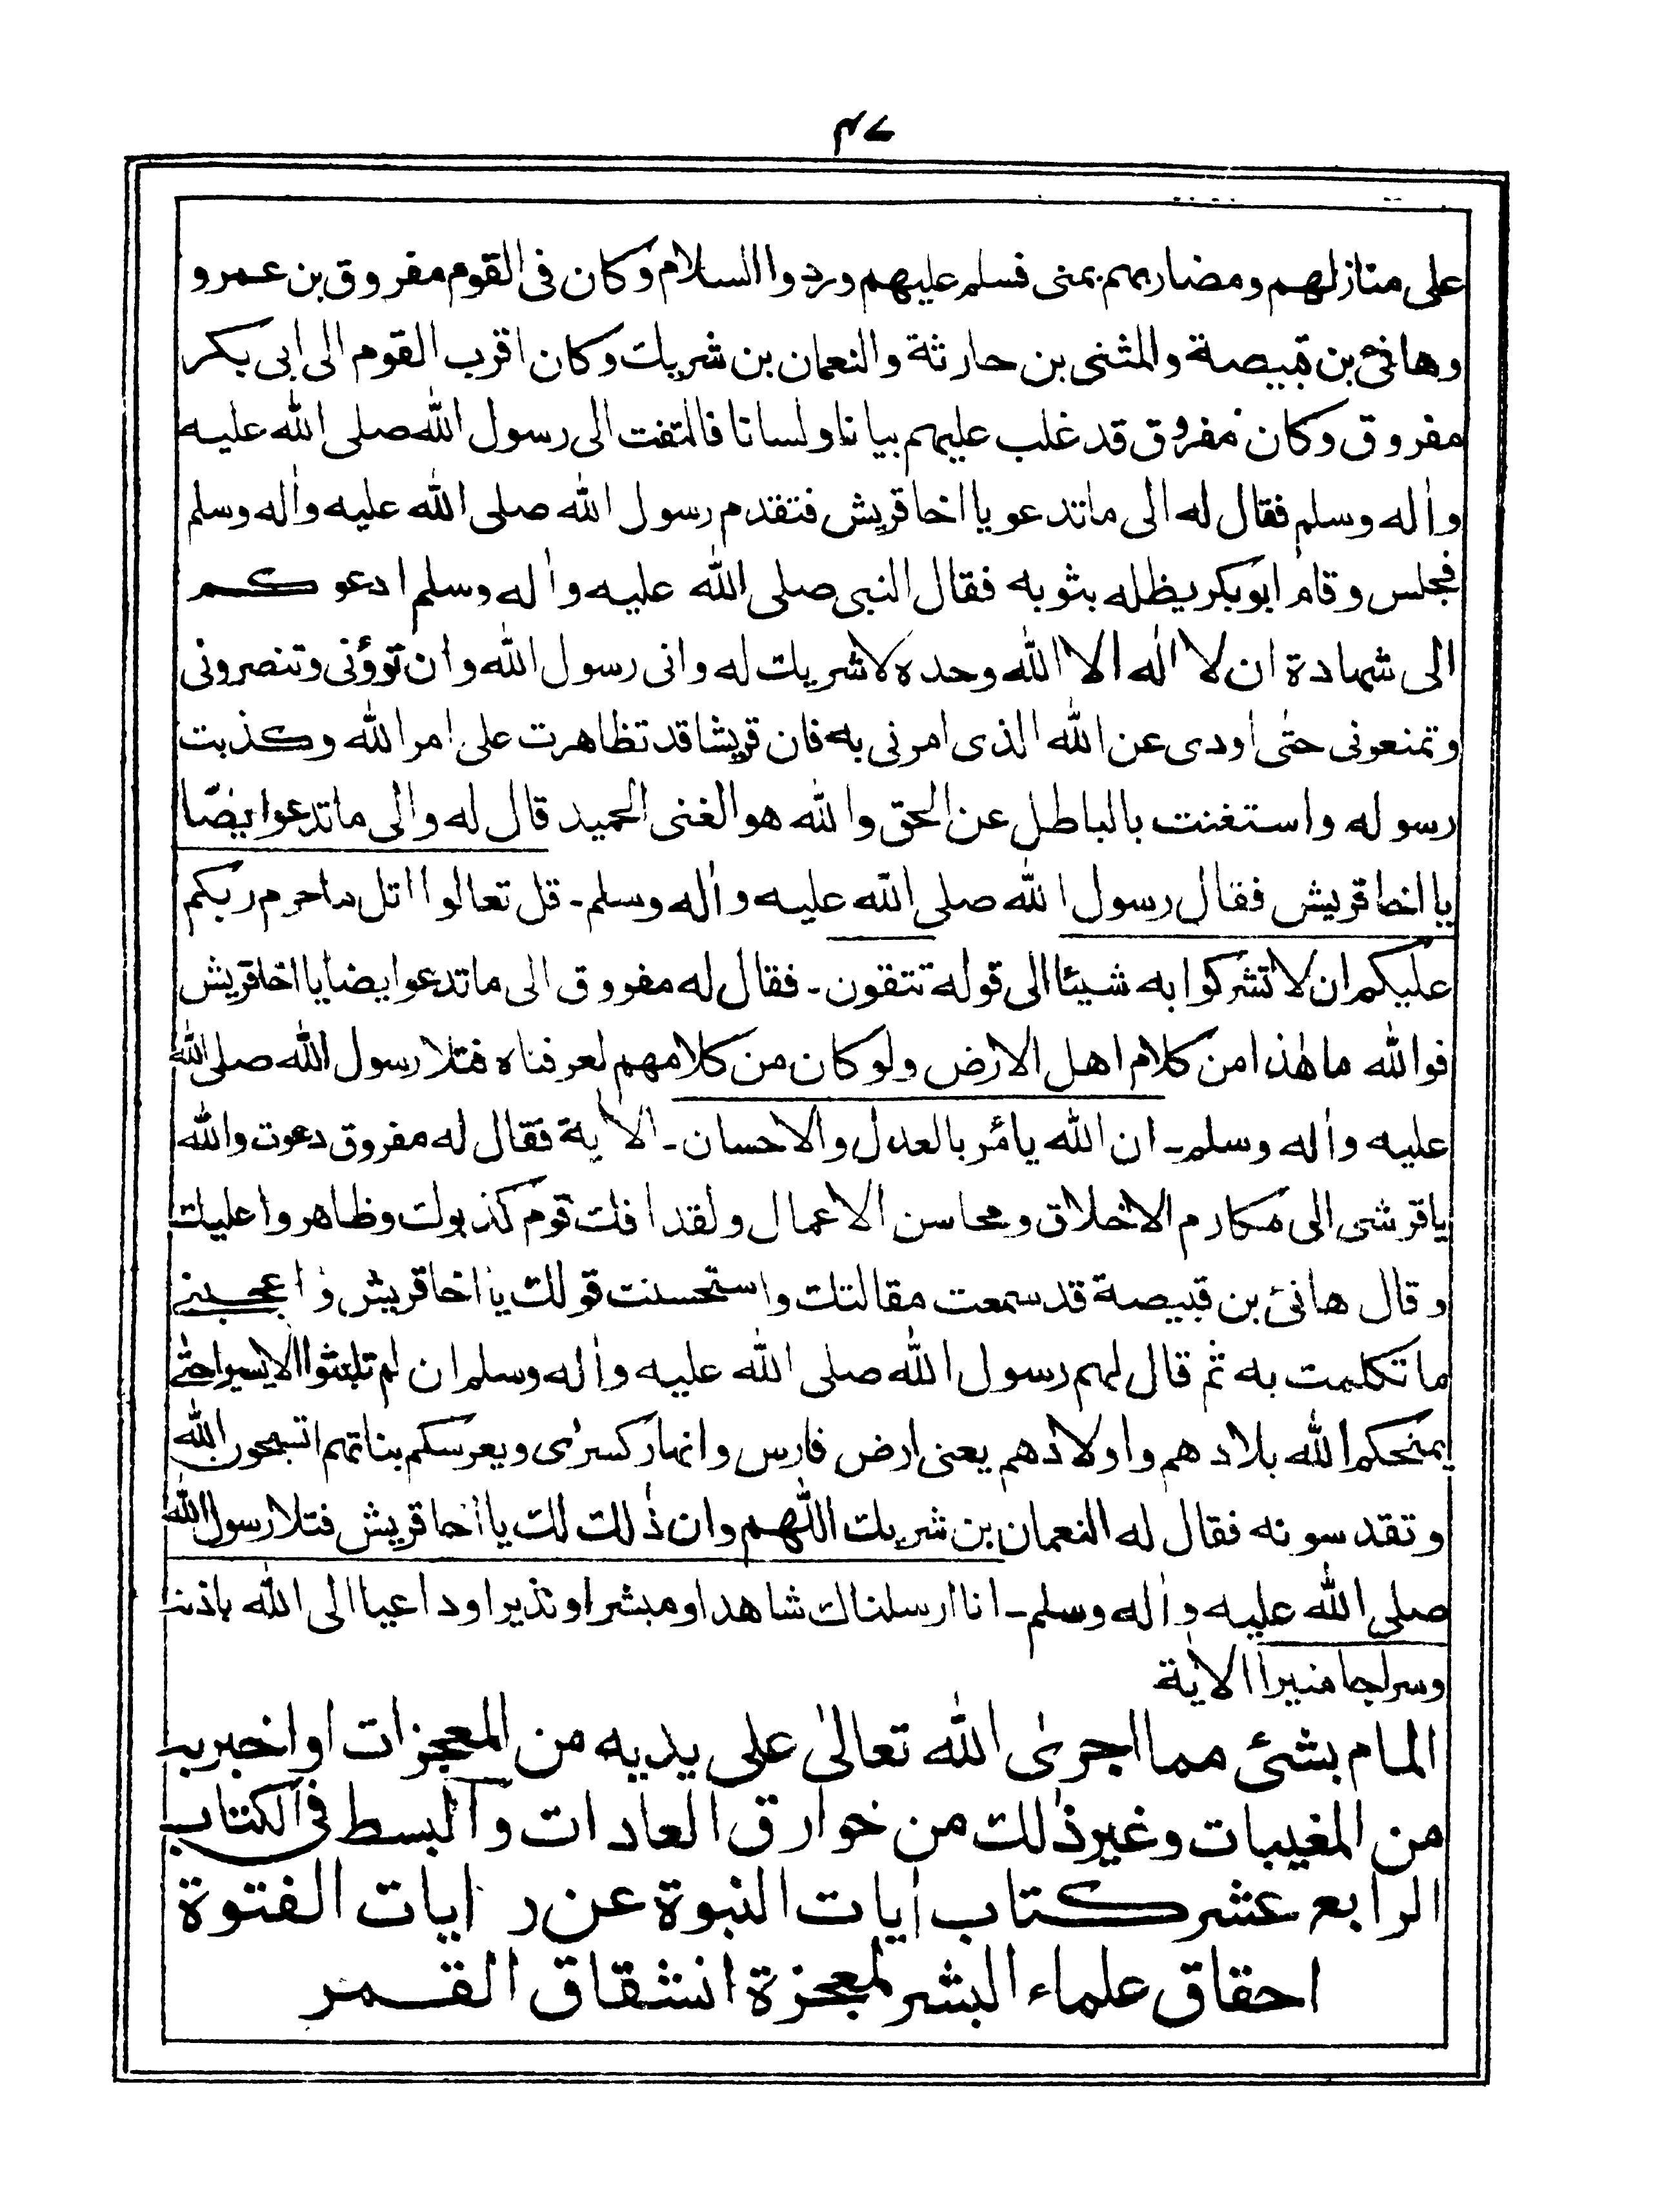 ۴۷
على منازلهم ومضاربهم بمنى فسلم عليهم وردوا السلام وكان فى القوم مفروق بن عمرو
وهانئ بن قبيصة والمثنى بن حارثة والنعمان بن شريك وكان اقرب القوم الى ابى بكر
مفروق وكان مفروق قد غلب عليهم بيانا ولسانا فالتفت الى رسول الله صلى الله عليه
واٰله وسلم فقال له الى ماتدعو يا اخا قريش فتقدم رسول الله صلى الله عليه واٰله وسلم
فجلس وقام ابوبكر يظله بثوبه فقال النبى صلى الله عليه واٰله وسلم ادعوكم
الى شهادة ان لا اله الا الله وحده لاشريك له وانى رسول الله وان تؤونى وتنصرونى
وتمنعونى حتى اودى عن الله الذى امرنى به فان قريشا قد تظاهرت على امر الله وكذبت
رسوله واستغنت بالباطل عن الحق والله هو الغنى الحميد قال له والى ماتدعوا يضًا
يا اخا قريش فقال رسول الله صلى الله عليه واٰله وسلم ۔ قل تعالوا اتل ماحرم ربكم
عليكم ان لا تشركوا به شيئا الى قوله تتقون ۔ فقال له مفروق الى ماتدعوا يضا يا اخا قريش
فوالله ما هٰذا من كلام اهل الارض ولو كان من كلامهم لعرفناه فتلا رسول الله صلى الله
عليه واٰله وسلم ۔ ان الله يأمر بالعدل والاحسان ۔ الاٰية فقال له مفروق دعوت والله
ياقرشى الى مكارم الاخلاق ومحاسن الاعمال ولقد افك قوم كذبوك وظاهروا عليك
وقال هانئ بن قبيصة قد سمعت مقالتك واستحسنت قولك يا اخا قريش واعجبنے
ما تكلمت به ثم قال لهم رسول الله صلى الله عليه واٰله وسلم ان لم تلبثوا الا يسيرا حتى
يمنحكم الله بلادهم واولادهم يعنى ارض فارس وانهار كسرٰى ويعرسكم بناتهم اتسبحون الله
وتقدسونه فقال له النعمان بن شريك اللّٰهم وان ذٰلك لك يا اخا قريش فتلا رسول الله
صلى الله عليه واٰله وسلم ۔ انا ارسلناك شاهدا ومبشرا ونذيرا وداعيا الى الله باذنه
وسراجا منيرا الاٰية
المام بشئ مما اجرىٰ الله تعالىٰ على يديه من المعجزات او اخبر به
من المغيبات وغير ذٰلك من خوارق العادات والبسط فى الكتاب
الرابع عشر كتاب اٰيات النبوة عن رايات الفتوة
احقاق علماء البشر لمعجزة انشقاق القمر